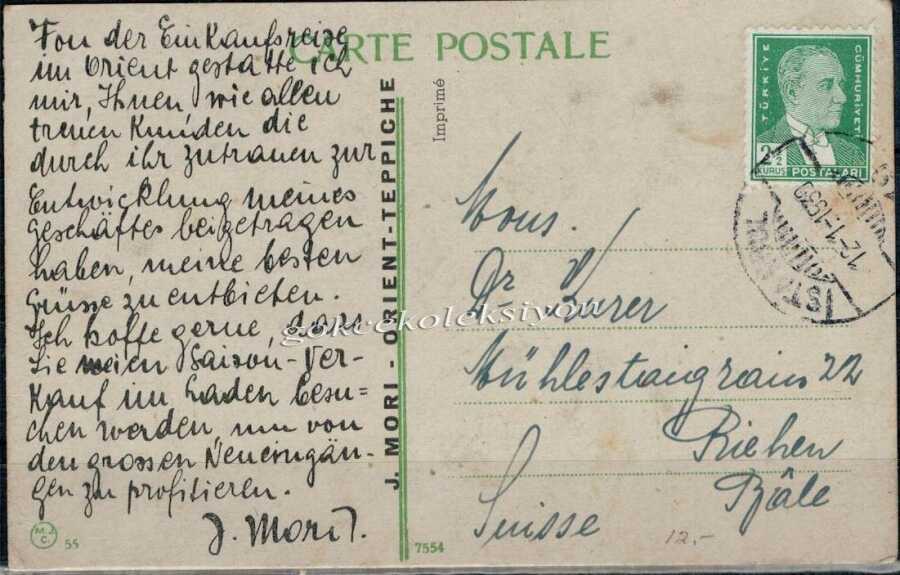 CARTE POSTALE
Von der Einkaufsreise
im Orient gestatte ich
mir, Ihnen wie allen
treuen Kunden die
durch ihr Zutrauen zur
Entwicklung meines
Geschäftes beigetragen
haben, meine besten
Grüsse zu entbieten.
Ich hoffe gerne, dass
Sie meinen Saison-Ver-
kauf im Laden besu-
chen werden um von
den grossen Neueingän-
gen zu profitieren.
J. Mori.
M.J.
C.
55
J. MORI - ORIENT-TEPPICHE
Imprimé
7554
TÜRKİYE
CÜMHURİYETİ
2½
KURUŞ
POSTALARI
ISTANBUL
Mons.
Dr V.
Mühlestaigrain 22
Riehen
Bâle
Suisse
12.-
gokcekoleksiyon